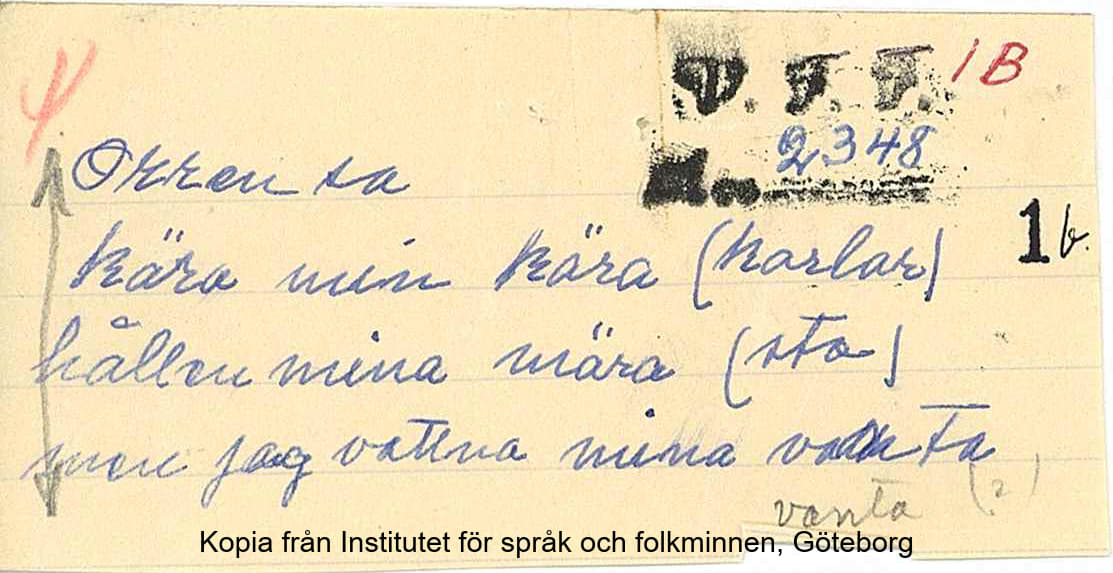 V. F. F. 1 B
2348
Orren sa
kära min kära (karlar)
1 b.
hållen mina mära (sto)
men jag vattna mina vanta
vanta (?)
Kopia från Institutet för språk och folkminnen, Göteborg